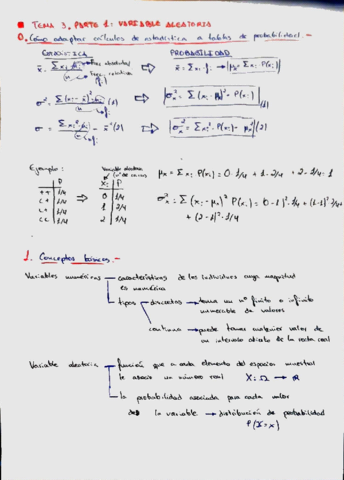 • TEMA 3. PARTE 1: VARIABLE ALEATORIA
0. Cómo adaptar cálculos de estadística a tablas de probabilidad.-
ESTADÍSTICA PROBABILIDAD
x̄ = Σxi·fi/n → x̄ = Σxi·fi → μx = Σxi·P(xi)
σ² = Σ(xi - x̄)²·fi/n (1) ⇒ σx² = Σ(xi - μx)²·P(xi) (1)
σ² = Σxi²·fi/n - x̄² (2) ⇒ σx² = Σxi²·P(xi) - μx² (2)
Ejemplo: Variable aleatoria
P xi P
++ 1/4 0 1/4
C+ 1/4 1 2/4
C+ 1/4 2 1/4
CC 1/4
μx = Σxi·P(xi) = 0·1/4 + 1·2/4 + 2·1/4 = 1
σx² = Σ(xi - μx)²·P(xi) = (0-1)²·1/4 + (1-1)²·2/4
+ (2-1)²·1/4
1. Conceptos básicos.-
Variables numéricas → características de los individuos cuya magnitud
es numérica
tipos → discretas → toma un nº finito o infinito
numerable de valores
continua → puede tomar cualquier valor de
un intervalo abierto de la recta real
Variable aleatoria → función que a cada elemento del espacio muestral
le asocia un número real X: Ω → ℝ
la probabilidad asociada para cada valor
de la variable → distribución de probabilidad
P(X=x)